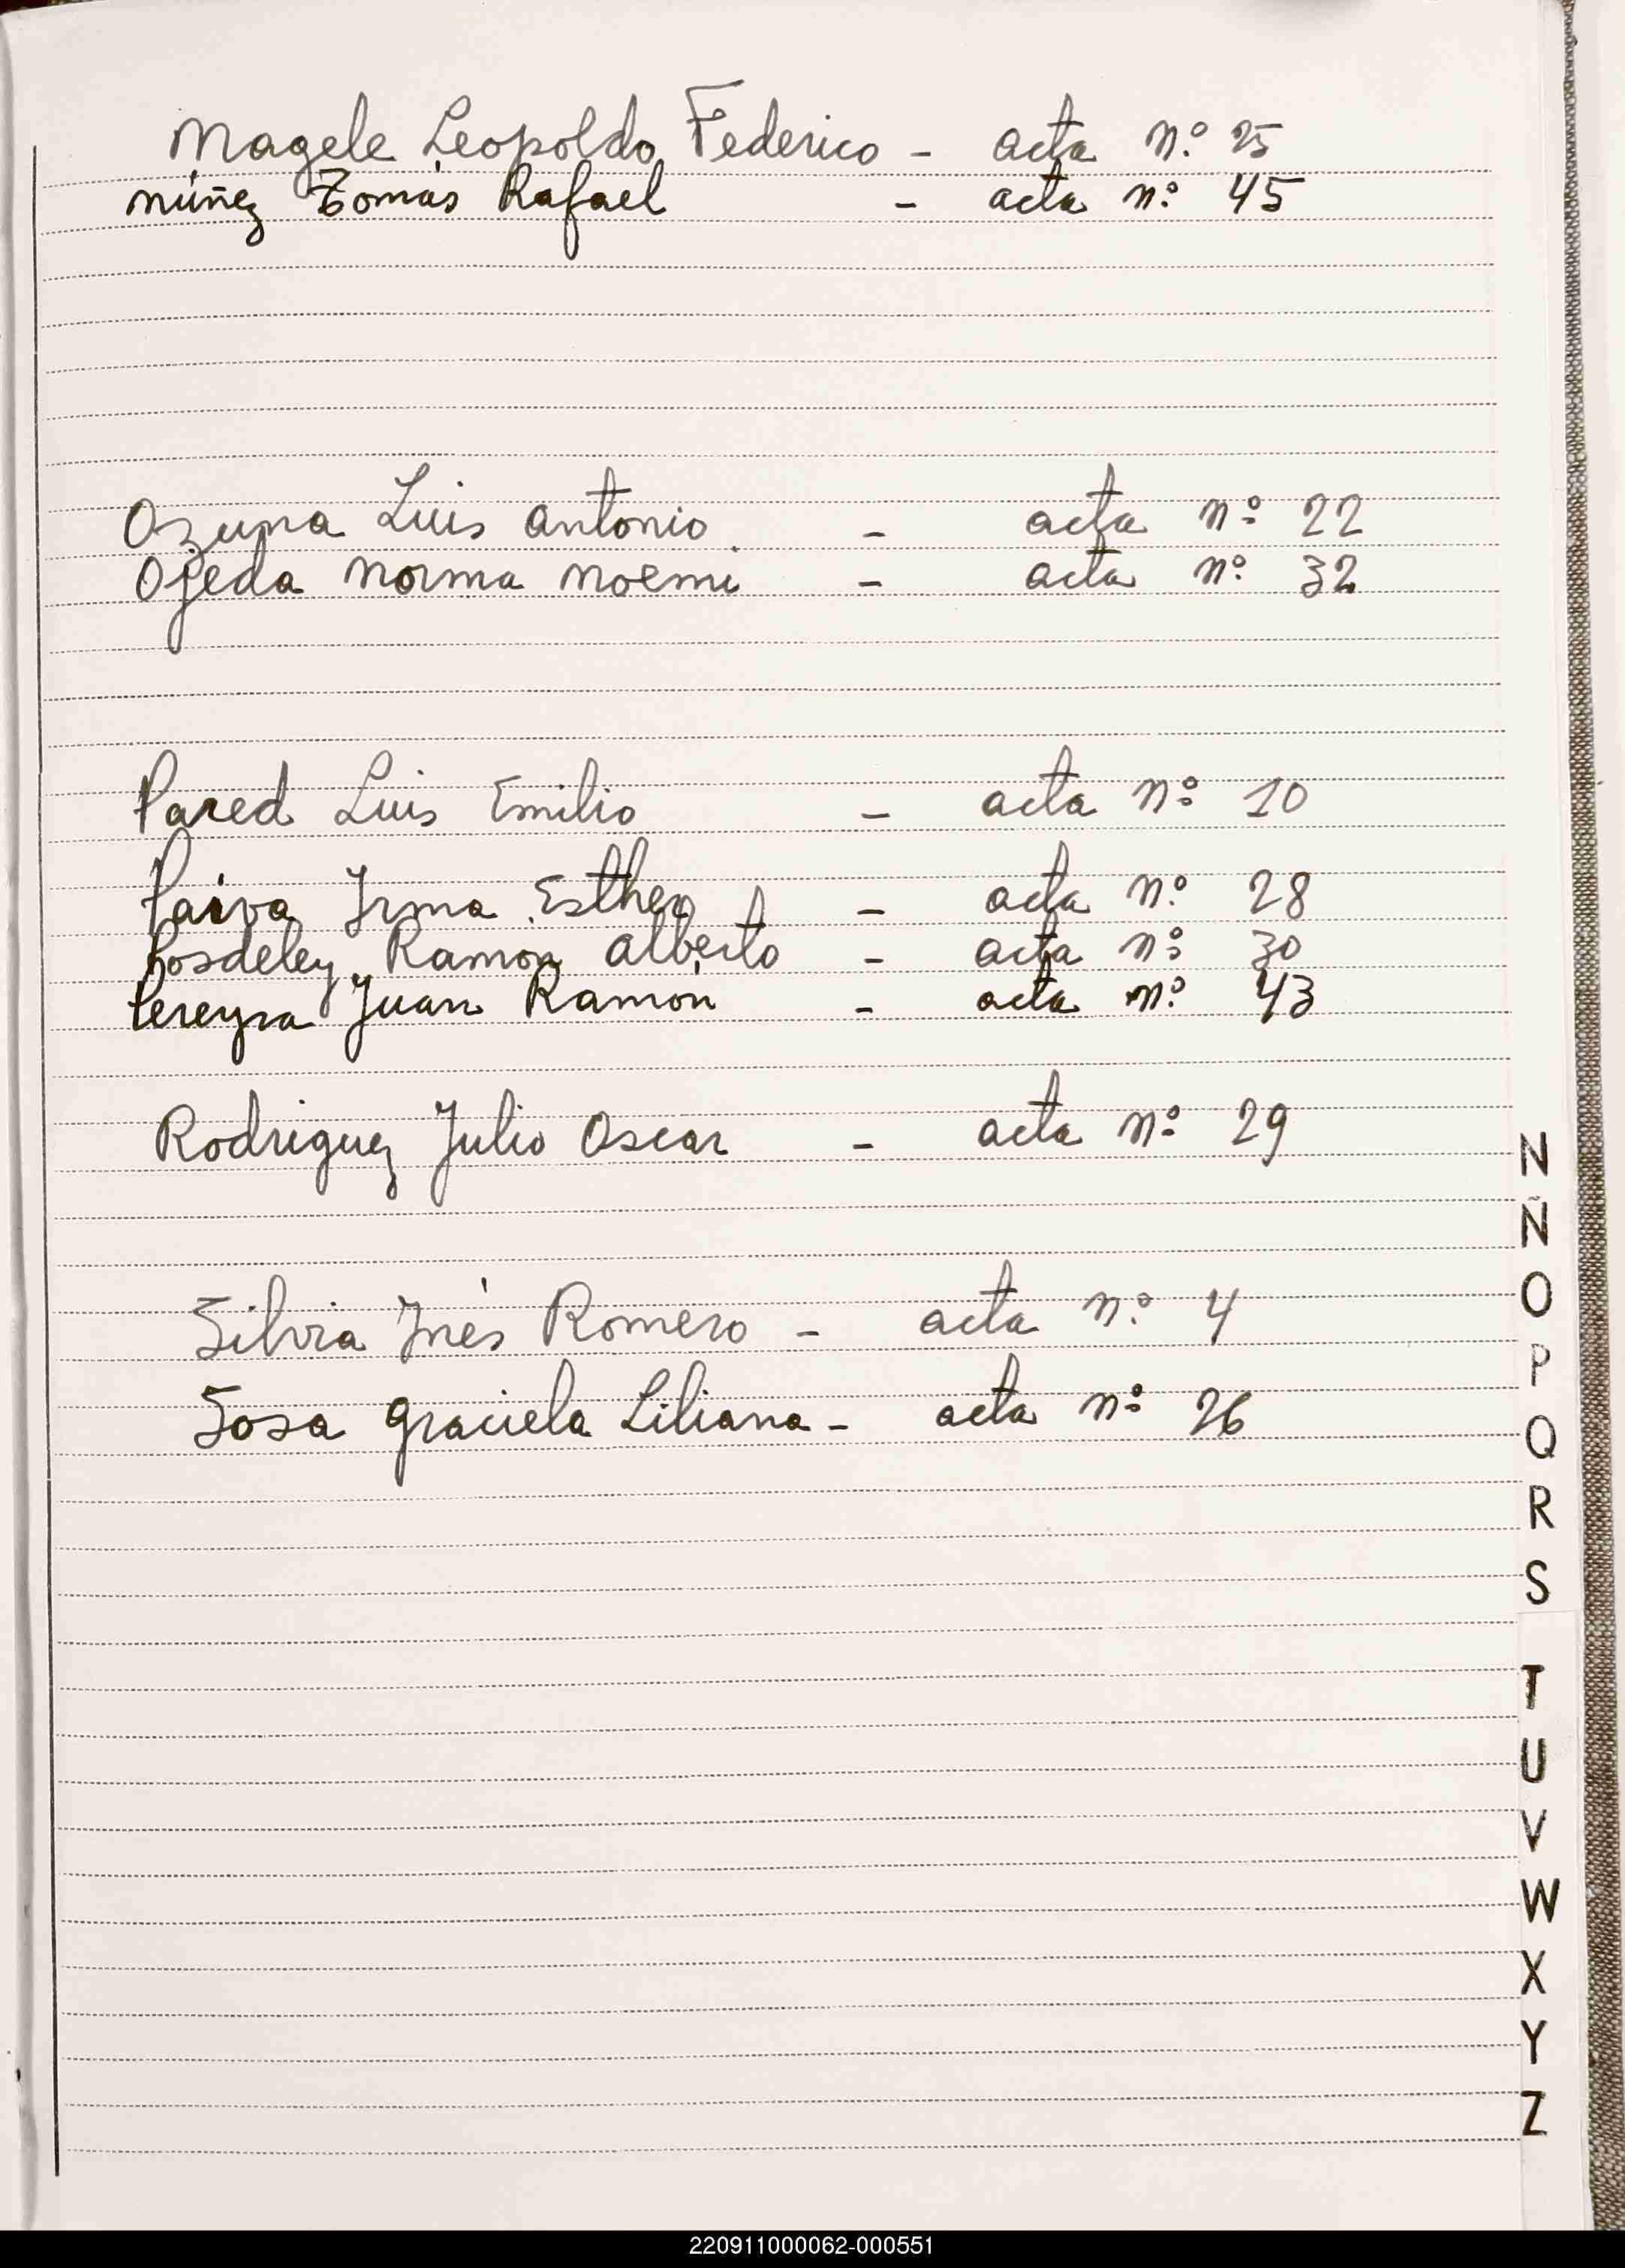 Magele Leopoldo Federico - acta n.º 25
Núñez Tomás Rafael - acta n.º 45
Ozuna Luis Antonio - acta n.º 22
Ojeda Norma Noemi - acta n.º 32
Pared Luis Emilio - acta n.º 10
Paiva Irma Esther - acta n.º 28
Posdeley Ramon Alberto - acta n.º 30
Pereyra Juan Ramón - acta n.º 43
Rodriguez Julio Oscar - acta n.º 29
Silvia Inés Romero - acta n.º 4
Sosa Graciela Liliana - acta n.º 26
N
Ñ
O
P
Q
R
S
T
U
V
W
X
Y
Z
220911000062-000551